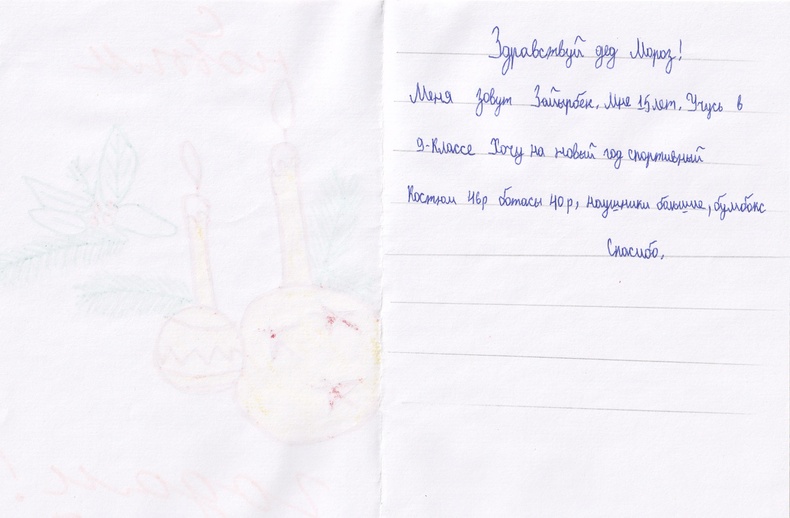 Здравствуй дед Мороз!
Меня зовут Зайырбек. Мне 15 лет. Учусь в
9-классе Хочу на новый год спортивный
Костюм 46р ботасы 40 р, наушники большие, бумбокс
Спасибо.
с новым
годом!